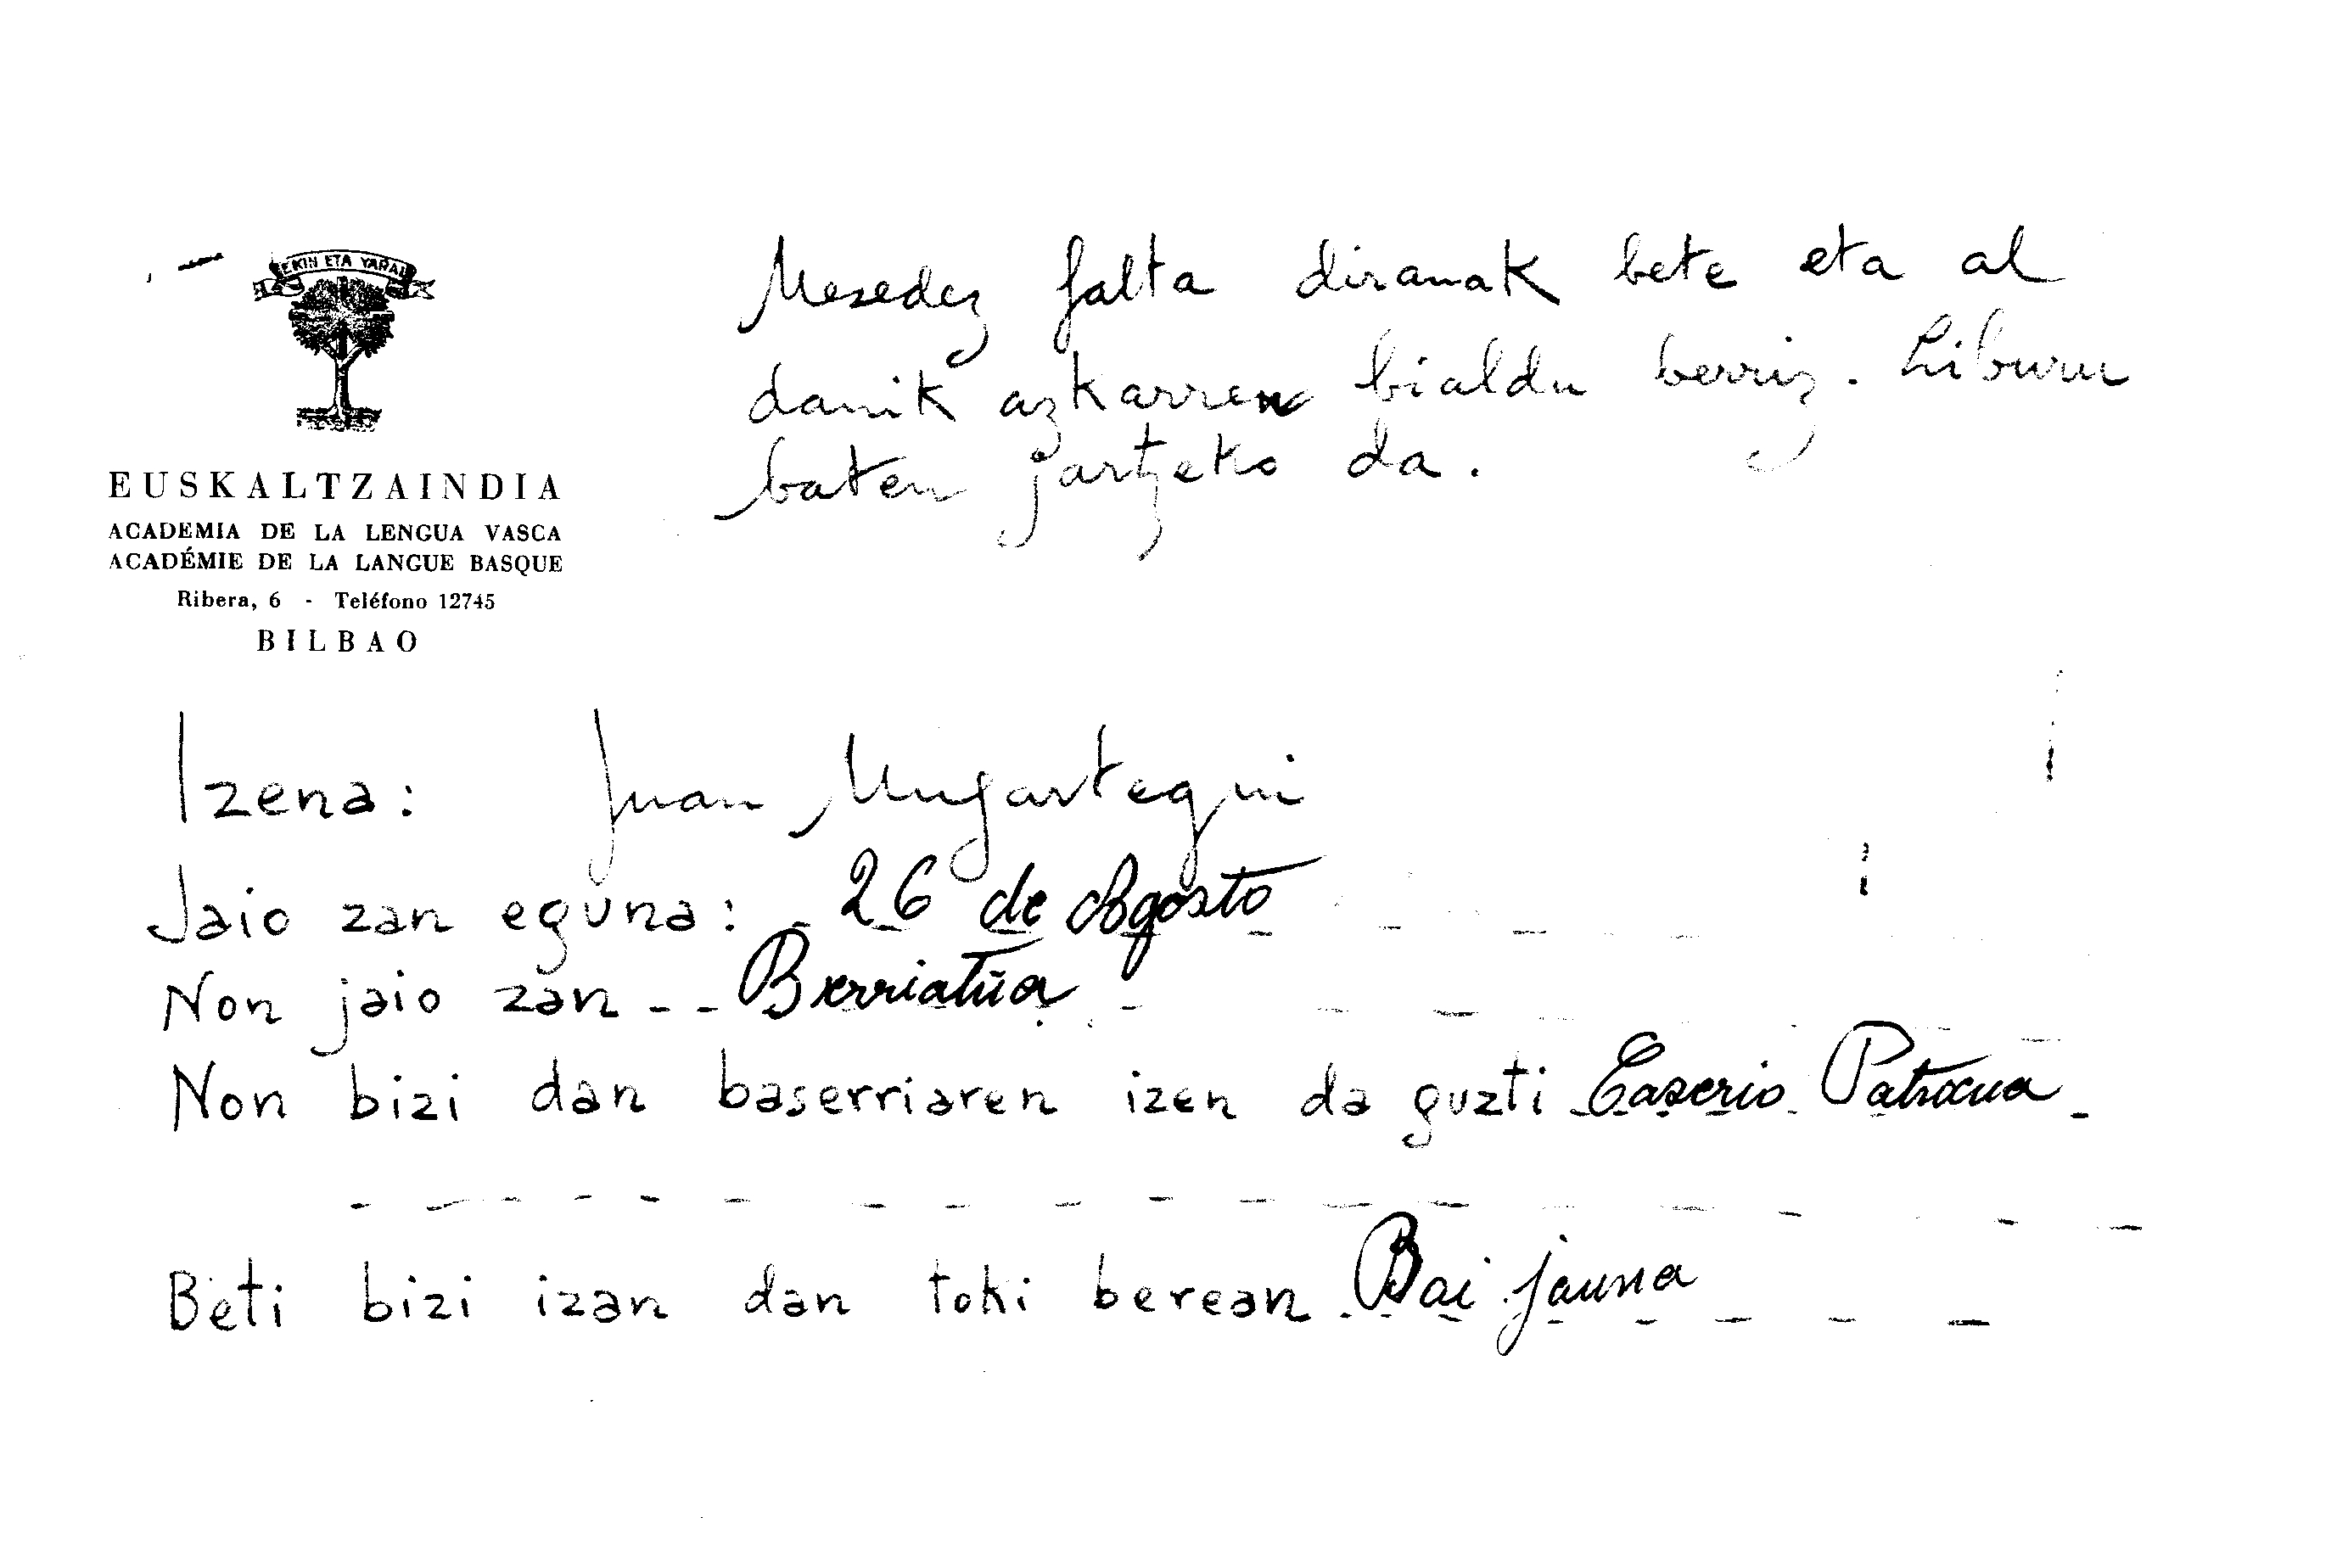 EKIN ETA YARAI
EUSKALTZAINDIA
ACADEMIA DE LA LENGUA VASCA
ACADÉMIE DE LA LANGUE BASQUE
Ribera, 6 - Teléfono 12745
BILBAO
Mesedez falta diranak bete eta al
danik azkarren bialdu berriz. Liburu
baten jartzeko da.
Izena: Juan Mugartegui
Jaio zan eguna: 26 de Agosto
Non jaio zan -- Berriatúa
Non bizi dan baserriaren izen da guzti Caserio Patxua
Beti bizi izan dan toki berean Bai jauna